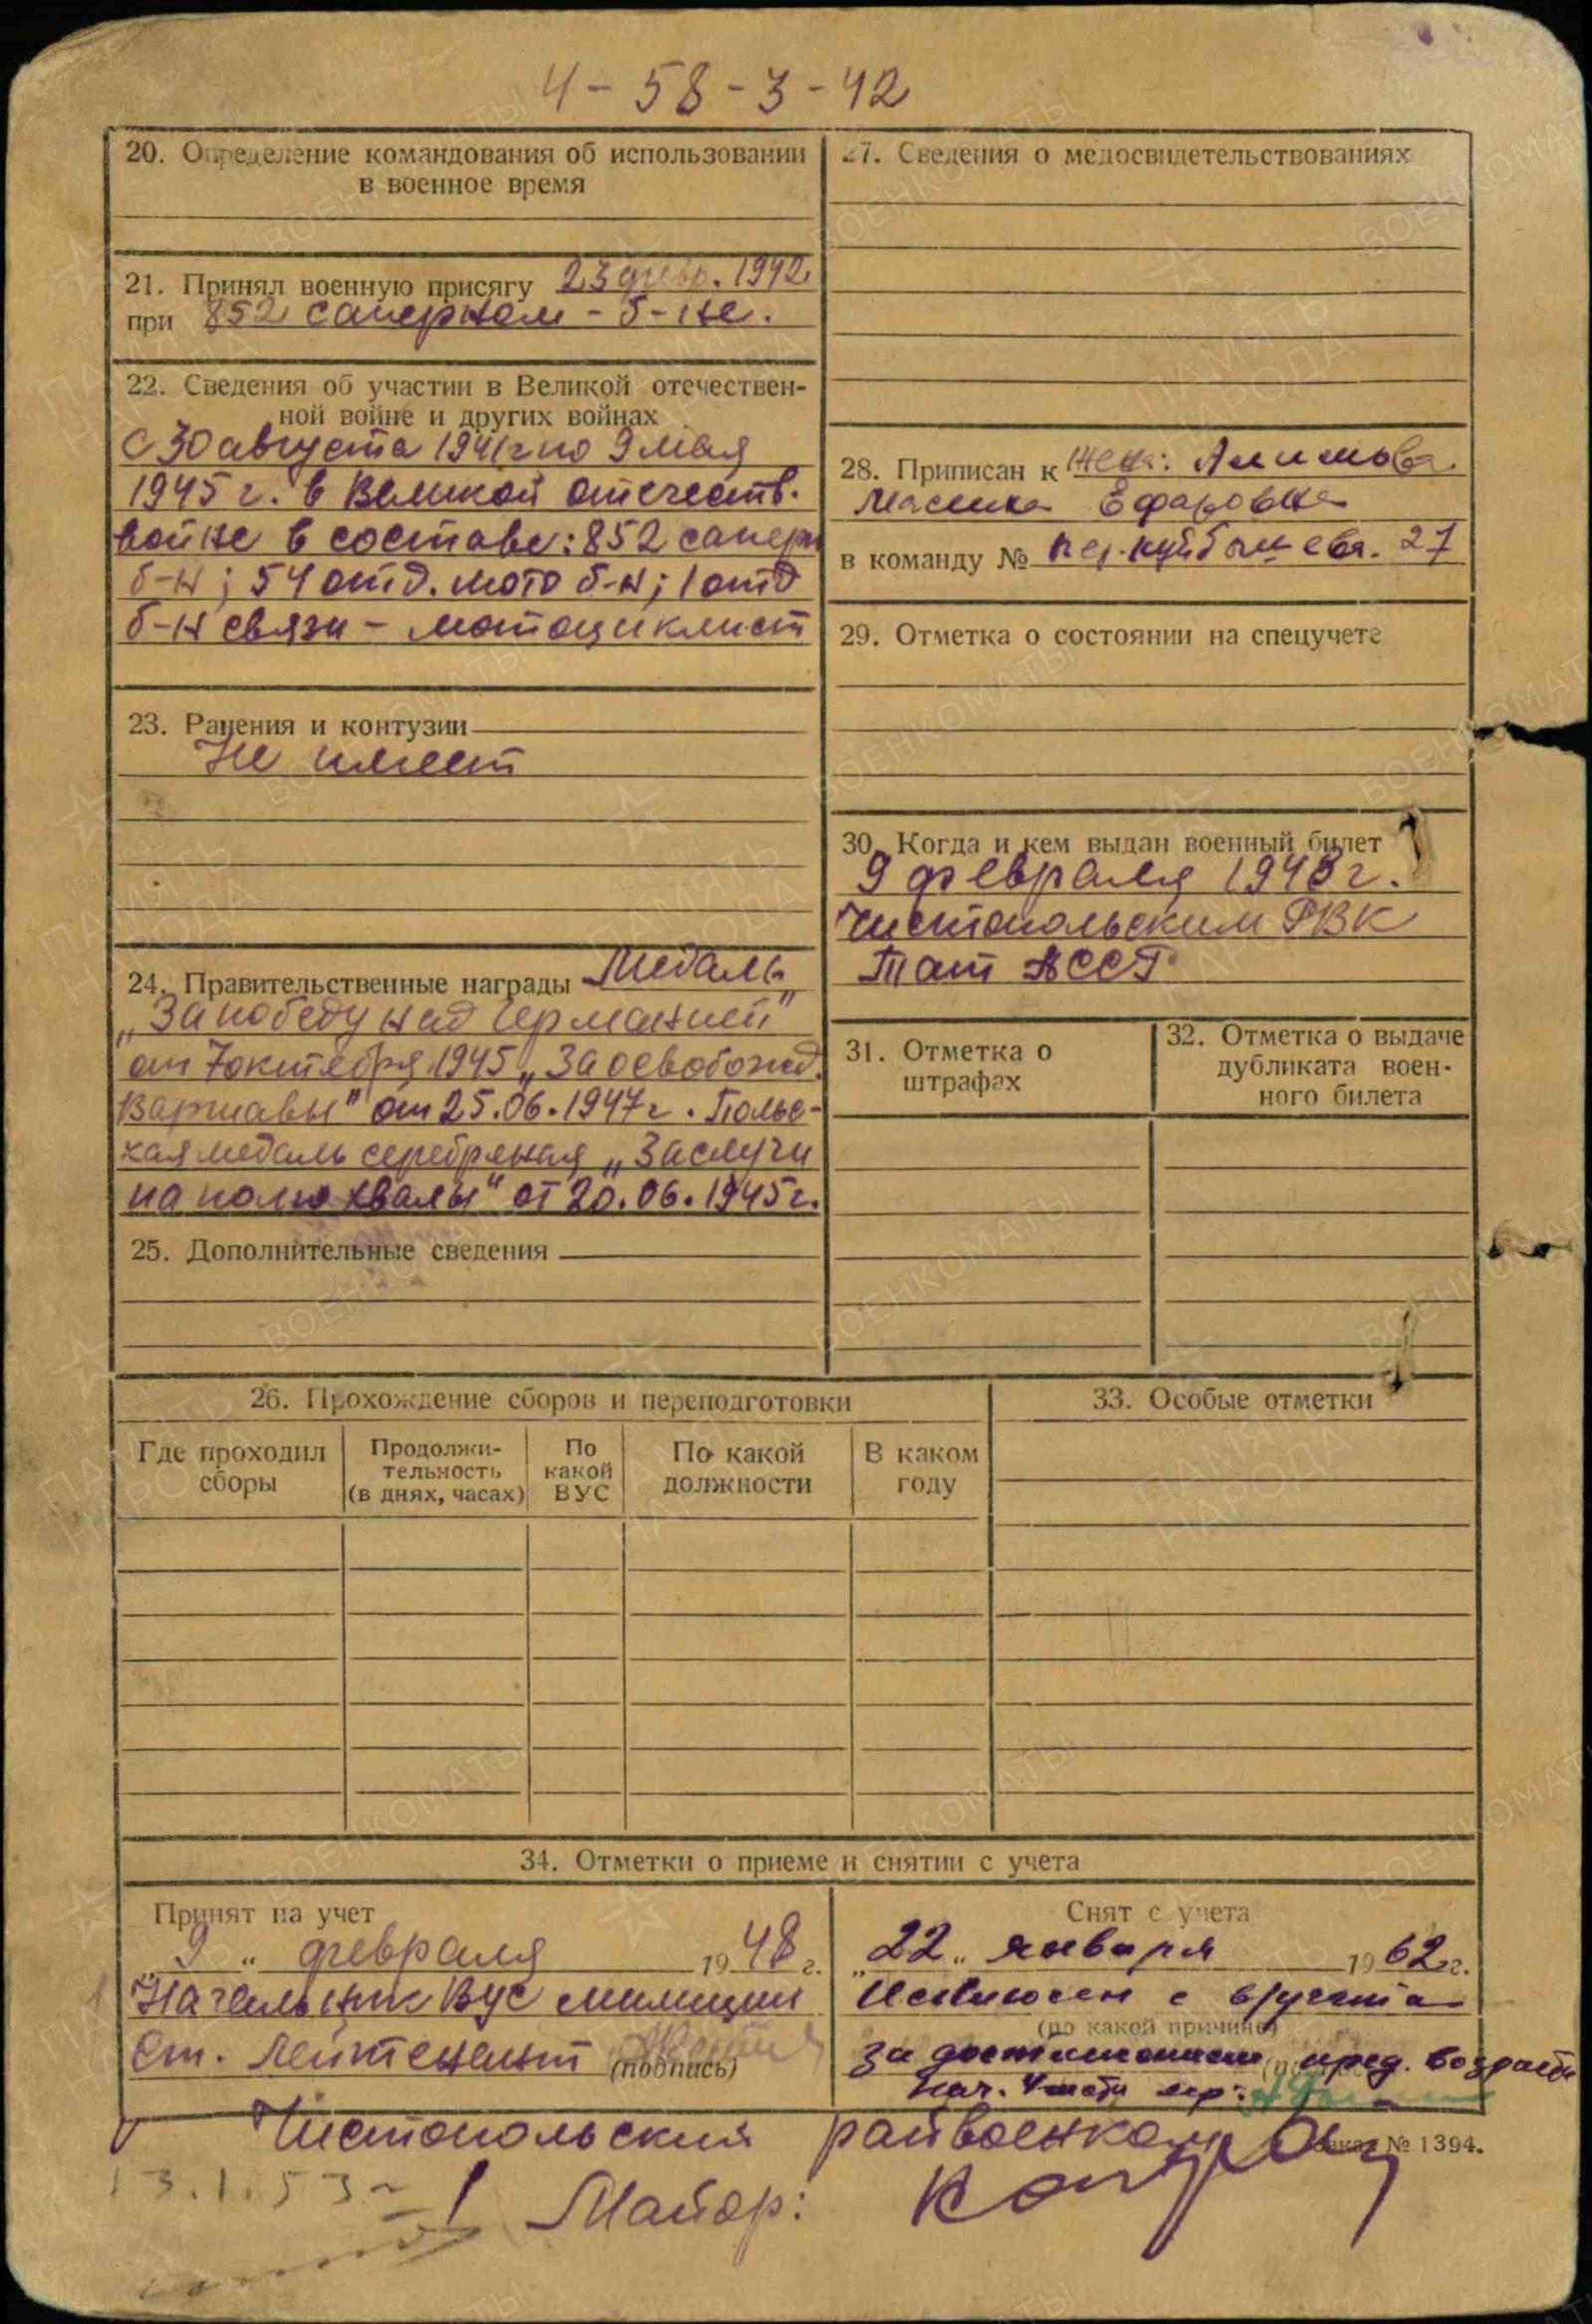 4-58-3-42
20. Определение командования об использовании
в военное время
21. Принял военную присягу 23 февр. 1942
при 852 саперном - б-не.
22. Сведения об участии в Великой отечествен-
ной войне и других войнах
С 30 августа 1941г по 9 мая
1945 г. в Великой отечеств.
войне в составе: 852 саперн
б-н; 54 отд. мото б-н; 1 отд
б-н связи - мотоциклист
23. Ранения и контузии
Не имеет
24. Правительственные награды Медаль
„За победу над Германией"
от 7 октября 1945 „За освобожд.
Варшавы" от 25.06.1947 г. Польс-
кая медаль серебряная „Заслуги
на полю хвалы" от 20.06.1945г.
25. Дополнительные сведения
27. Сведения о медосвидетельствованиях
28. Приписан к жена: Алимова
в команду № пер. Куйбышева. 27
29. Отметка о состоянии на спецучете
30. Когда и кем выдан военный билет
9 февраля 1948 г.
Чистопольским РВК
Тат АССР
31. Отметка о
штрафах
32. Отметка о выдаче
дубликата воен-
ного билета
26. Прохождение сборов и переподготовки
Где проходил
сборы
Продолжи-
тельность
(в днях, часах)
По
какой
ВУС
По какой
должности
В каком
году
33. Особые отметки
34. Отметки о приеме и снятии с учета
Принят на учет
„9" февраля 1948 г.
Начальник ВУС милиции
Ст. лейтенант
(подпись)
Снят с учета
„22" января 1962 г.
Исключен с в/учета
(по какой причине)
за достижением пред. возраста
нач. 4 части
Чистопольский райвоенком
№ 1394.
13.1.53
Майор: